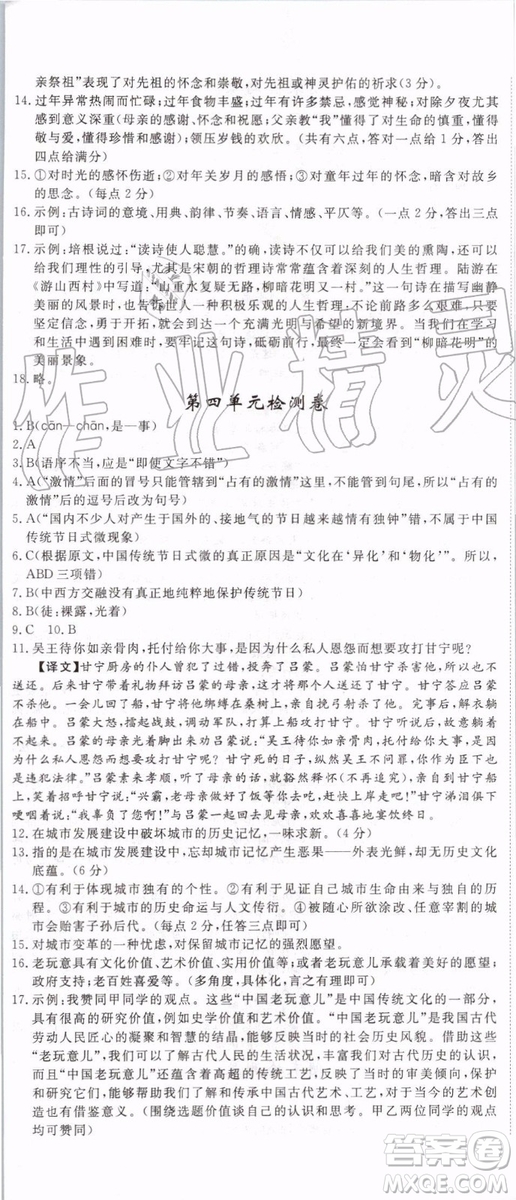 亲祭祖”表现了对先祖的怀念和崇敬,对先祖或神灵护佑的祈求(3分)
14. 过年异常热闹而忙碌;过年食物丰盛;过年有禁忌,感觉神秘;对除夕夜尤其
感到意义深重(母亲的安慰、怀念和祝愿;父亲教“我”懂得对年对生命的慎重,懂得
敬与爱,懂得珍惜和感谢);领压岁钱的欢欣。(共有六点,答对一点给1分,答出
四点给满分)
15. ①对时光的感怀伤逝;②对年关岁月的感悟;③对童年过年的怀念,暗含对故乡
的思念。(每点2分)
16. 示例:古诗词的意境、用典、韵律、节奏、语言、情感、平仄等。(一点2分,答出三点
即可)
17. 示例:培根说过:“读诗使人聪慧。”读诗不仅可以给我们美的熏陶,还可以给我
们人生哲理性的引导,尤其是宋朝的哲理诗常常蕴含着深刻的人生哲理。陆游在
《游山西村》中写道:“山重水复疑无路,柳暗花明又一村。”这句诗在描写幽静
美丽的风景时,也告诉世人一种积极乐观的人生哲理:不论前路多么艰难,只要
坚定信念,勇于开拓,就能出现充满光明与希望的新境界。我们也会在学习
和生活中遇到困难,也要秉持这句诗歌,砥砺前行,领略到“柳暗花明”的
美丽景象。
18. 略。
第四单元检测卷
1. B(cān—chān,是一事)
2. A
3. B(语序不当,应是“即使文字不错”)
4. A(“激情”后面的冒号只能管辖到“占有的激情”这里,不能管到句尾,所以“占有的
激情”其后的逗号应改为句号)
5. A(“国内不少人对产生于国外的、接地气的节日越来越情有独钟”错,不属于中国
传统节日式微的表现)
6. C(根据原文,中国传统节日式微的原因是“文化在‘异化’和‘物化’”。所以,
ABD三项错)
7. B(中西方交融没有真正地纯粹地保护传统节日)
8. B(徒:裸露,光着)
9. C 10. B
11. 吴王待你如亲骨肉,托付给你大事,是因为什么私人恩怨而攻打甘宁呢?
【译文】甘宁厨房的仆人曾经有过失,逃跑投奔到了吕蒙。吕蒙恐怕甘宁杀害他,
没有即刻送还。后来甘宁带着礼物拜访吕蒙的母亲,送还给甘宁。甘宁答应吕蒙
不杀他。一会儿回到船上,将他捆绑在桑树上,亲自挽弓射杀了他。完事后,解衣躺
在船中。吕蒙大怒,击鼓召集士兵,想要上船攻打甘宁。甘宁听说后,故意躺着不
起来。吕蒙的母亲光着脚跑出来劝谏吕蒙说:“吴王待你如亲骨肉,托付给你大事,是因
为什么私人恩怨而攻打甘宁呢?甘宁死的日子,纵然吴王不问,你作为臣下也
是违犯法律。”吕蒙素来孝顺,听了母亲的话,就豁然消释了心中的怒意,亲自到甘
宁船上,笑着招呼他说:“兴霸,老母亲做了饭招待你,赶快上岸!”甘宁涕泪泪俱下,哽
咽地说:“我辜负了您。”就和吕蒙一起回来见他的母亲,欢欢喜喜地宴饮一整天。
12. 在城市发展建设中破坏城市的历史记忆,一味求新。(4分)
13. 指的是在城市发展建设中,忘却城市记忆产生恶果——外表光鲜,却无历史文化
底蕴。(6分)
14. ①有利于体现城市独有的个性。②有利于自己城市生命由来与成长经
历的记录。③有利于城市的历史与人文传衍。④如果忽视并涂改、忘却它,城
市会贻害子孙后代。(每点2分,答对三点即可)
15. 对城市变革的一种忧虑,对保留城市记忆的强烈愿望。
16. 老玩意具有文化价值、艺术价值、实用价值;老玩意儿代表着追求美好的愿望;
政府支持;老百姓喜爱等。(多角度,具体,言之成理即可)
17. 示例:我赞同甲同学的观点。这些“中国老玩意儿”是中国传统文化的一部分,
具有很高的研究价值、艺术价值和实用价值。这些“中国老玩意儿”是我国古代
劳动人民匠心的凝聚和智慧的结晶,有着各种社会历史风貌。借助这些
“中国老玩意儿”,丰富了我们对古代人民的生活、历史文化的认识,而
且这些“中国老玩意儿”蕴含着超高的传统工艺,有很高的审美情趣,保护
和研究它们,能够丰富我们对中国古代艺术、工艺的认识,对于当今的艺术创造
也有借鉴意义。(围绕选题价值谈自己的看法即可。甲乙两位同学的观点
均可赞同)
作业精灵
答案圈
MXQE.COM